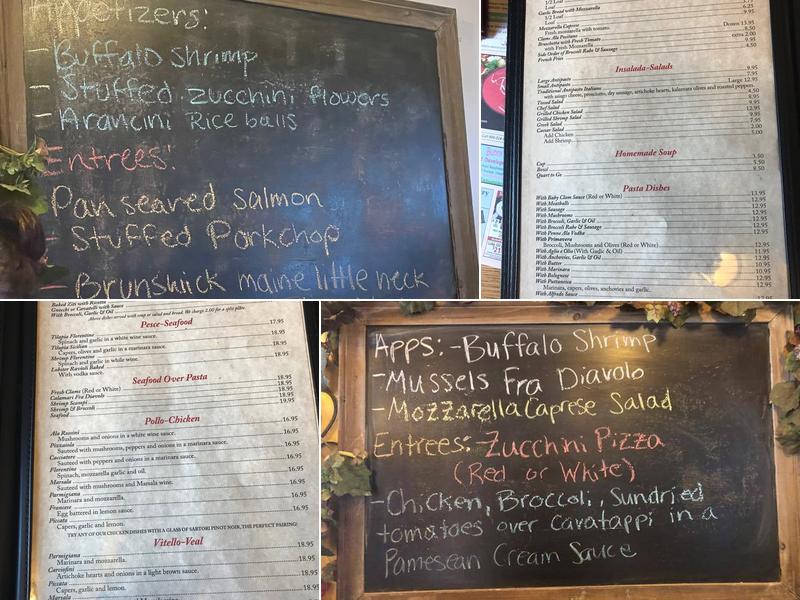 Appetizers:
- Buffalo Shrimp
- Stuffed zucchini flowers
- Arancini Rice balls
Entrees:
Pan seared Salmon
- Stuffed Porkchop
- Brunswick maine little neck
1/2 Loaf
Loaf 6.25
Garlic Bread with Mozzarella
1/2 Loaf
Loaf 9.95
Mozzarella Caprese
Fresh mozzarella with tomato. Dozen 13.95
Clams Ala Positano
Bruschetta with Fresh Tomato extra 2.00
with Fresh Mozzarella 9.95
Side Order of Broccoli Rabe & Sausage 4.50
French Fries
Insalada-Salads
Large Antipasto 9.95
Small Antipasto 7.95
Traditional Antipasto Italiano Large 12.95
with asiago cheese, prosciutto, dry sausage, artichoke hearts, kalamata olives and roasted peppers.
Tossed Salad 4.50
Chef Salad 8.95
Grilled Chicken Salad
Grilled Shrimp Salad
Greek Salad
Caesar Salad
Add Chicken
Add Shrimp 5.00
Homemade Soup
Cup 3.50
Bowl 5.50
Quart to Go 8.50
Pasta Dishes
With Baby Clam Sauce (Red or White) 13.95
With Meatballs 12.95
With Sausage
With Mushrooms
With Broccoli, Garlic & Oil
With Broccoli Rabe & Sausage
With Penne Ala Vodka
With Primavera
Broccoli, Mushrooms and Olives (Red or White) 12.95
With Aglio e Olio (With Garlic & Oil) 11.95
With Anchovies, Garlic & Oil 12.95
With Butter 10.95
With Marinara 10.95
With Bolognese 12.95
With Puttanesca 12.95
Marinara, capers, olives, anchovies and garlic.
With Alfredo Sauce 12.95
Baked Ziti with Ricotta
Gnocchi or Cavatelli with Sauce
With Broccoli, Garlic & Oil
Above dishes served with soup or salad and bread. We charge 2.00 for a split plate.
Pesce-Seafood
Tilapia Florentine 17.95
Spinach and garlic in a white wine sauce.
Tilapia Sicilian 18.95
Capers, olives and garlic in a marinara sauce.
Shrimp Florentine 18.95
Spinach and garlic in white wine.
Lobster Ravioli Baked 18.95
With vodka sauce.
Seafood Over Pasta
Fresh Clams (Red or White) 18.95
Calamari Fra Diavolo 18.95
Shrimp Scampi 18.95
Shrimp & Broccoli
Seafood 19.95
Pollo-Chicken
Ala Rossini 16.95
Mushrooms and onions in a white wine sauce.
Pizzaiola 16.95
Sauteed with mushrooms, peppers and onions in a marinara sauce.
Cacciatore 16.95
Sauteed with peppers and onions in a marinara sauce.
Florentine 16.95
Spinach, mozzarella garlic and oil.
Marsala 16.95
Sauteed with mushrooms and Marsala wine.
Parmigiana 16.95
Marinara and mozzarella.
Francese 16.95
Egg battered in lemon sauce.
Piccata 16.95
Capers, garlic and lemon.
TRY ANY OF OUR CHICKEN DISHES WITH A GLASS OF SARTORI PINOT NOIR, THE PERFECT PAIRING!
Vitello-Veal
Parmigiana 18.95
Marinara and mozzarella.
Carciofini 18.95
Artichoke hearts and onions in a light brown sauce.
Piccata 18.95
Capers, garlic and lemon.
Marsala 18.95
Apps: - Buffalo Shrimp
- Mussels Fra Diavolo
- Mozzarella Caprese Salad
Entrees: - Zucchini Pizza
(Red or White)
- Chicken, Broccoli, Sundried
tomatoes over Cavatappi in a
Pamesean Cream Sauce